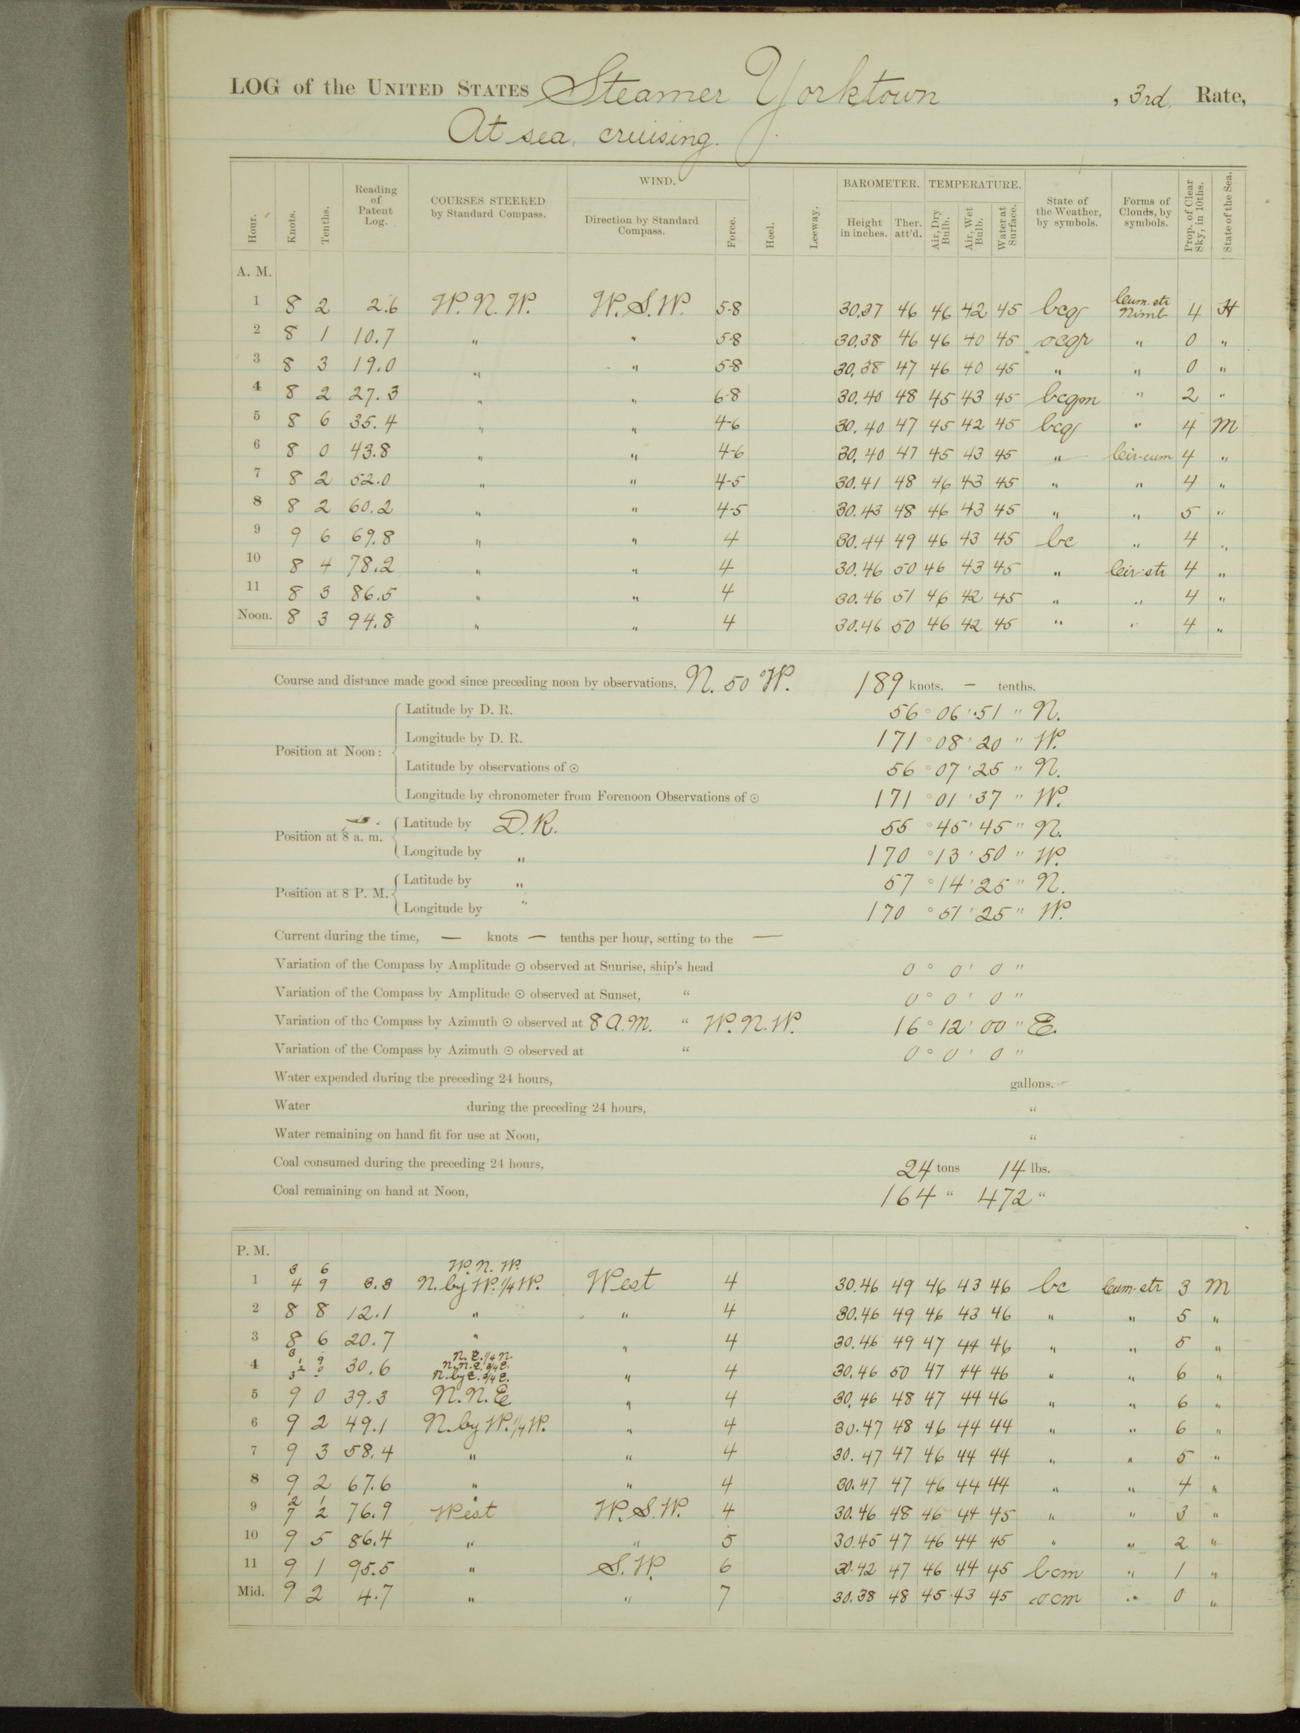 LOG of the UNITED STATES Steamer Yorktown , 3rd. Rate,
At sea, cruising.
Hour. Knots. Tenths. Reading of Patent Log. COURSES STEERED by Standard Compass. WIND. Direction by Standard Compass. Force. Heel. Leeway. BAROMETER. Height in inches. Ther. att'd. TEMPERATURE. Air, Dry Bulb. Air, Wet Bulb. Water at Surface. State of the Weather, by symbols. Forms of Clouds, by symbols. Prop. of Clear Sky, in 10ths. State of the Sea.
A. M.
1 8 2 2.6 W.N.W. W.S.W. 5-8 30.37 46 46 42 45 bcq Cum-str Nimb 4 H
2 8 1 10.7 " " 5-8 30.38 46 46 40 45 ocqr " 0 "
3 8 3 19.0 " " 5-8 30.38 47 46 40 45 " " 0 "
4 8 2 27.3 " " 6-8 30.40 48 45 43 45 bcqm " 2 "
5 8 6 35.4 " " 4-6 30.40 47 45 42 45 bcq " 4 M
6 8 0 43.8 " " 4-6 30.40 47 45 43 45 " Cir-cum 4 "
7 8 2 52.0 " " 4-5 30.41 48 46 43 45 " " 4 "
8 8 2 60.2 " " 4-5 30.43 48 46 43 45 " " 5 "
9 9 6 69.8 " " 4 30.44 49 46 43 45 bc " 4 "
10 8 4 78.2 " " 4 30.46 50 46 43 45 " Cir-str 4 "
11 8 3 86.5 " " 4 30.46 51 46 42 45 " " 4 "
Noon. 8 3 94.8 " " 4 30.46 50 46 42 45 " " 4 "
Course and distance made good since preceding noon by observations, N. 50° W. 189 knots. — tenths.
Position at Noon: Latitude by D. R. 56° 06' 51" N.
Longitude by D. R. 171° 08' 20" W.
Latitude by observations of ☉ 56° 07' 25" N.
Longitude by chronometer from Forenoon Observations of ☉ 171° 01' 37" W.
Position at 8 a. m. Latitude by D.R. 55° 45' 45" N.
Longitude by " 170° 13' 50" W.
Position at 8 P. M. Latitude by " 57° 14' 25" N.
Longitude by " 170° 51' 25" W.
Current during the time, — knots — tenths per hour, setting to the —
Variation of the Compass by Amplitude ☉ observed at Sunrise, ship's head 0° 0' 0"
Variation of the Compass by Amplitude ☉ observed at Sunset, " 0° 0' 0"
Variation of the Compass by Azimuth ☉ observed at 8 A.M. " W.N.W. 16° 12' 00" E.
Variation of the Compass by Azimuth ☉ observed at " 0° 0' 0"
Water expended during the preceding 24 hours, gallons.
Water during the preceding 24 hours, "
Water remaining on hand fit for use at Noon, "
Coal consumed during the preceding 24 hours, 24 tons 14 lbs.
Coal remaining on hand at Noon, 164 " 472 "
P. M.
3 6 W.N.W.
1 4 9 3.3 N.by W.¼W. West 4 30.46 49 46 43 46 bc Cum-str 3 M
2 8 8 12.1 " " 4 30.46 49 46 43 46 " " 5 "
3 8 6 20.7 " " 4 30.46 49 47 44 46 " " 5 "
N.E.¼N
4 30.6 N.N.E.¾E. " 4 30.46 50 47 44 46 " " 6 "
N.by E.¾E.
5 9 0 39.3 N.N.E " 4 30.46 48 47 44 46 " " 6 "
6 9 2 49.1 N.by W.¼W. " 4 30.47 48 46 44 44 " " 6 "
7 9 3 58.4 " " 4 30.47 47 46 44 44 " " 5 "
8 9 2 67.6 " " 4 30.47 47 46 44 44 " " 4 "
2 1 "
9 7 2 76.9 West W.S.W. 4 30.46 48 46 44 45 " " 3 "
10 9 5 86.4 " " 5 30.45 47 46 44 45 " " 2 "
11 9 1 95.5 " S.W. 6 30.42 47 46 44 45 bcm " 1 "
Mid. 9 2 4.7 " " 7 30.38 48 45 43 45 ocm " 0 "